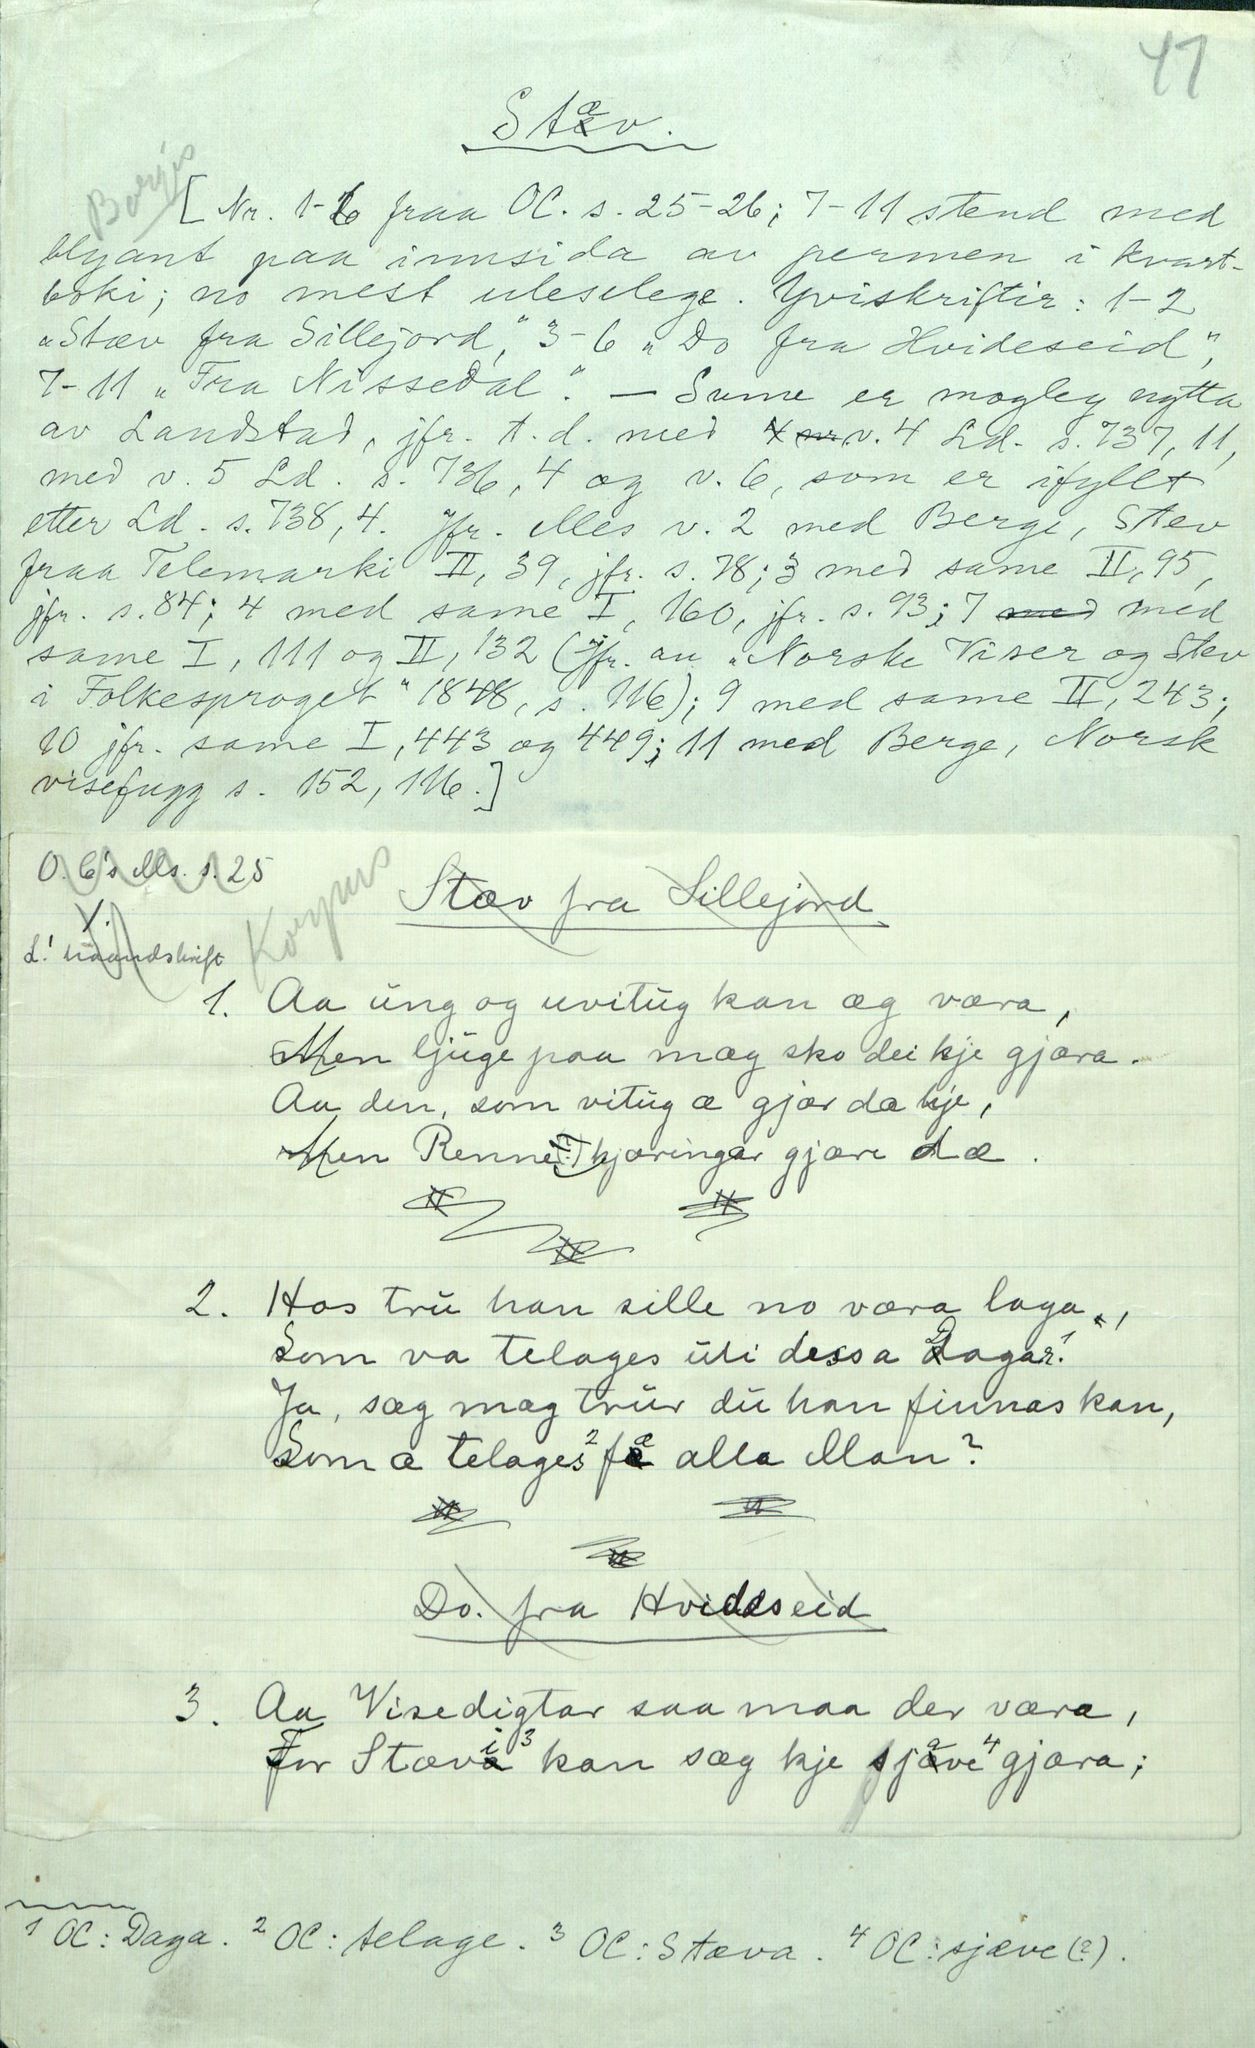 47
Stæv.
Borgis
[Nr. 1-6 fraa OC. s. 25-26; 7-11 stend med
blyant paa innsida av permen i kvart-
boki; no mest uleselege. Yviskriftir: 1-2
"Stæv fra Sillejord," 3-6 "Do fra Hvideseid",
7-11 "Fra Nissedal". — Sume er mogleg nytta
av Landstad, jfr. t. d. med v. 4 Ld. s. 737, 11,
med v. 5 Ld. s. 736, 4 og v. 6, som er ifyllt
etter Ld. s. 738, 4. Jfr. elles v. 2 med Berge, Stev
fraa Telemarki II, 39, jfr. s. 78; 3 med same II, 95,
jfr. s. 84; 4 med same I, 160, jfr. s. 93; 7 med med
same I, 111 og II, 132 (jfr. au "Norske Viser og Stev
i Folkesproget" 1848, s. 116); 9 med same II, 243;
10 jfr. same I, 443 og 449; 11 med Berge, Norsk
visefugg s. 152, 116.]
O. C's Ms. s. 25
Korpus
Stæv fra Sillejord
L! haandskrift
1. Aa ung og uvitug kan æg være,
Men ljuge paa mæg sko dei kje gjæra.
Aa den, som vitug æ gjær dæ kje,
Men Renne kjæringar gjære dæ.
2. Hos tru han sille no væra laga,
Som va telages uti dessa Dagar.¹
Ja, sæg mæg trur du han finnas kan,
Som æ telages² fæ alla Man?
Do. fra Hvideseid
3. Aa Visedigtar saa maa der være,
For Stævi³ kan sæg kje sjæve⁴ gjæra;
¹ OC: Daga. ² OC: telage. ³ OC: Stæva. ⁴ OC: sjæve (?).